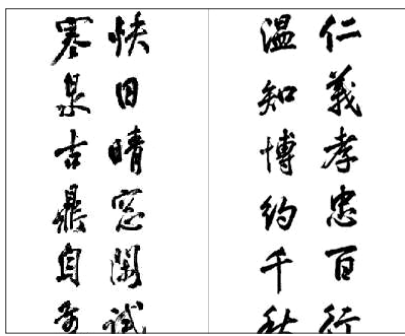 仁義孝忠百行
温知博約千秋
快日晴窓閑試
寒泉古鼎自煮